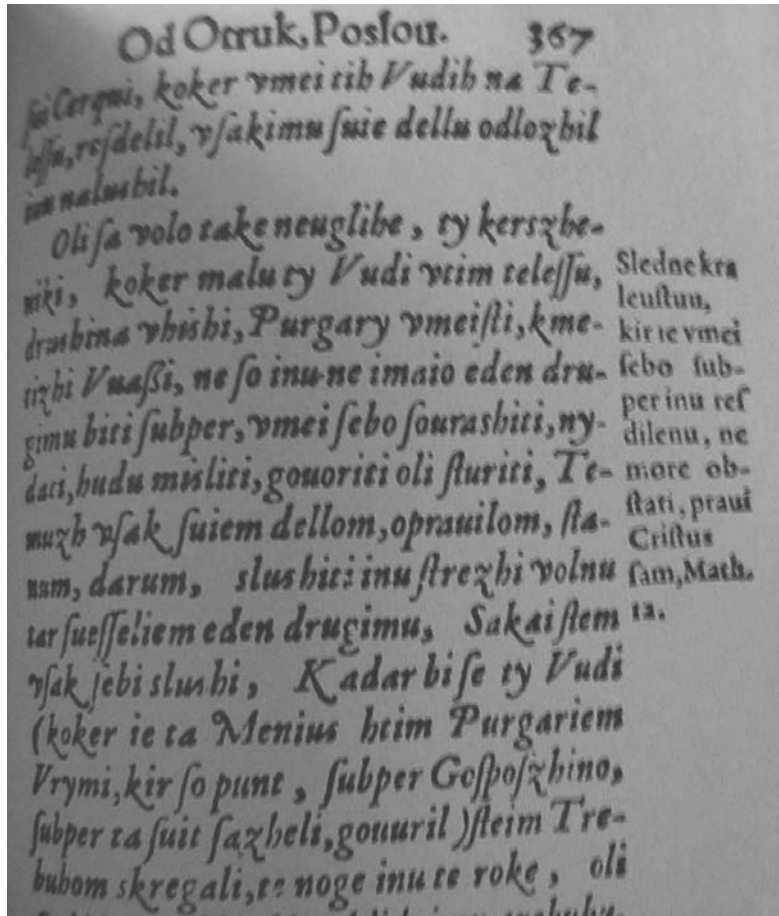 Od Otruk, Poslou. 367
ſui Cerqui, koker vmei tih Vudih na Te-
leſſu, reſdelil, vſakimu ſuie dellu odlozhil
inu nalushil.
Oli ſa volo take neuglihe, ty kerszhe-
niki, koker malu ty Vudi vtim teleſſu,
drushina vhishi, Purgary vmeiſti, kme-
tizhi Vuaßi, ne ſo inu ne imaio eden dru-
gimu biti ſubper, vmei ſebo ſourashiti, ny-
dati, hudu misliti, gouoriti oli ſturiti, Te-
muzh vſak ſuiem dellom, oprauilom, ſta-
num, darum, slushiti inu ſtrezhi volnu
tar ſueſſeliem eden drugimu, Sakai ſtem
vſak ſebi slushi, Kadar bi ſe ty Vudi
(koker ie ta Menius htim Purgariem
Vrymi, kir ſo punt, ſubper Goſpoſzhino,
ſubper ta ſuit ſazheli, gouuril) ſteim Tre-
buhom skregali, te noge inu te roke, oli
Sledne kra
leuſtuu,
kir ie vmei
ſebo ſub-
per inu reſ
dilenu, ne
more ob-
ſtati, praui
Criſtus
ſam, Math.
12.